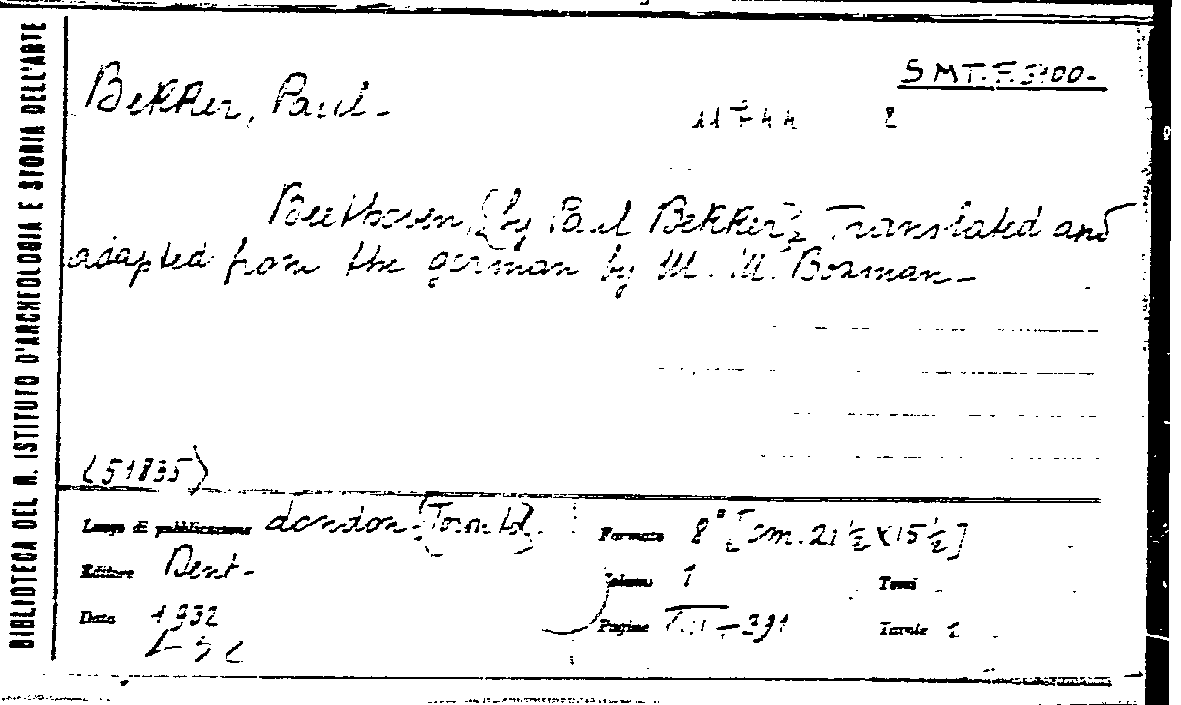 BIBLIOTECA DEL R. ISTITUTO D'ARCHEOLOGIA E STORIA DELL'ARTE
S.M.T.F. 3100-
Bekker, Paul-
11744 2
Beethoven, [by Paul Bekker]. Translated and
adapted from the german by M. M. Bozman-
(51835)
Luogo di pubblicazione London
Formato 8° [cm. 21 ½ x 15 ½]
Editore Dent-
Volume 1
Tomi
Data 1932
Pagine -391
Tavole 1